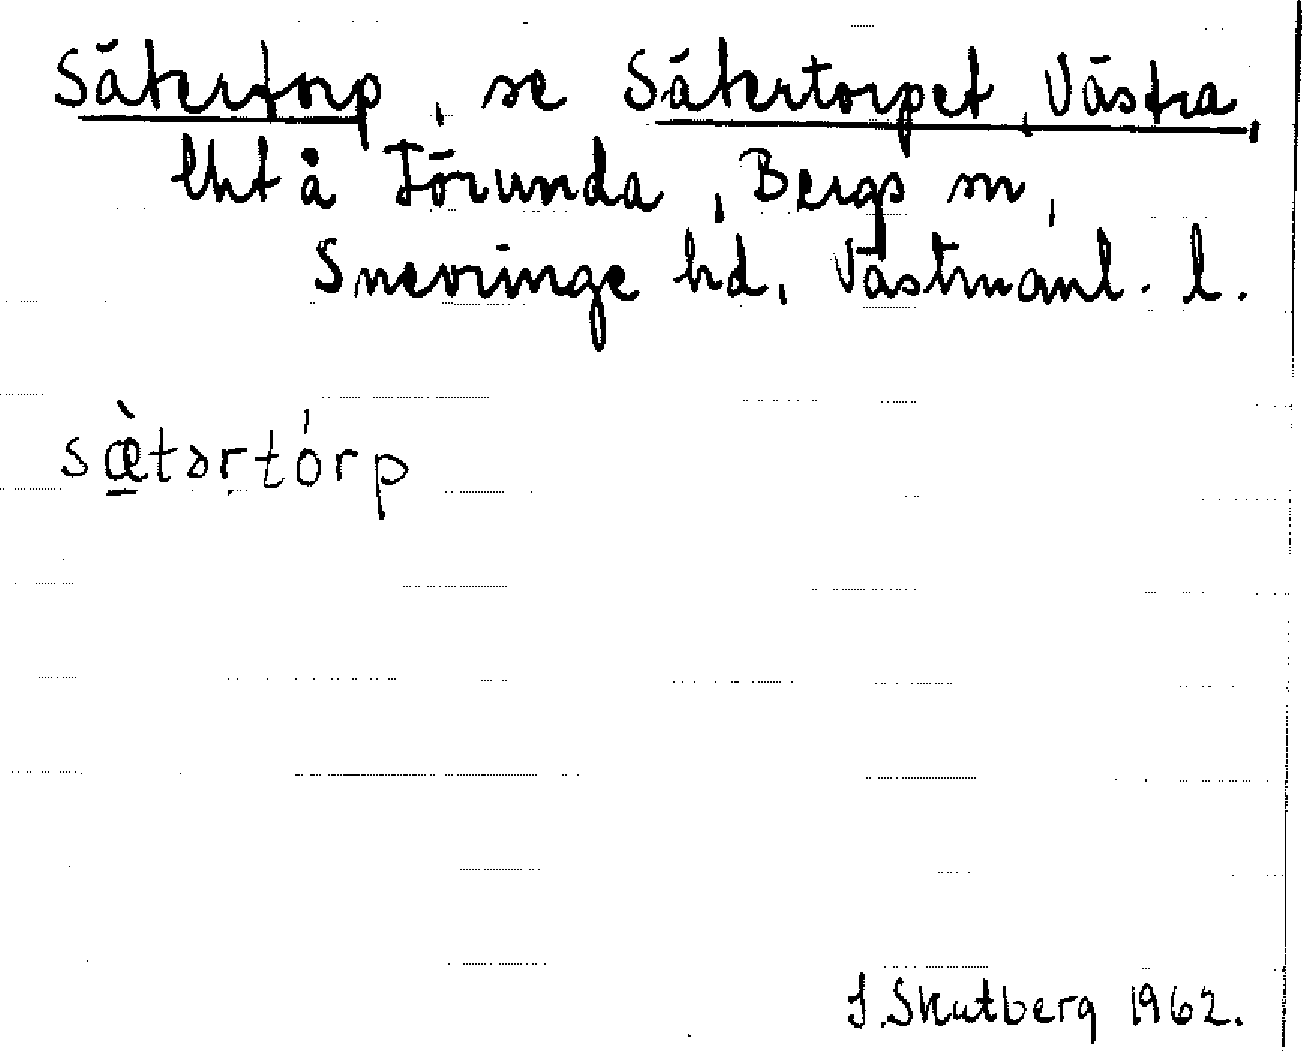 Sätertorp, se Sätertorpet, Västra,
lht å Törunda, Bergs sn,
Snevringe hd, Västmanl. l.
sæ̀tərtórp
J. Skutberg 1962.